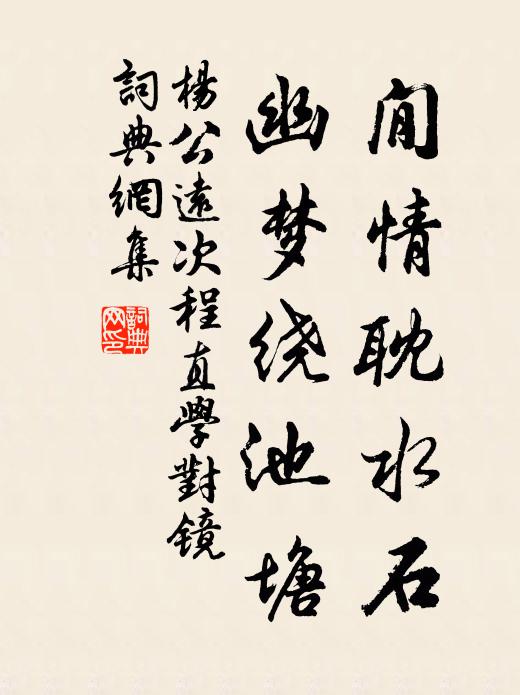 閒情耽水石
幽梦绕池塘
楊公遠次程直學對镜
詞典網集
詞典
网印